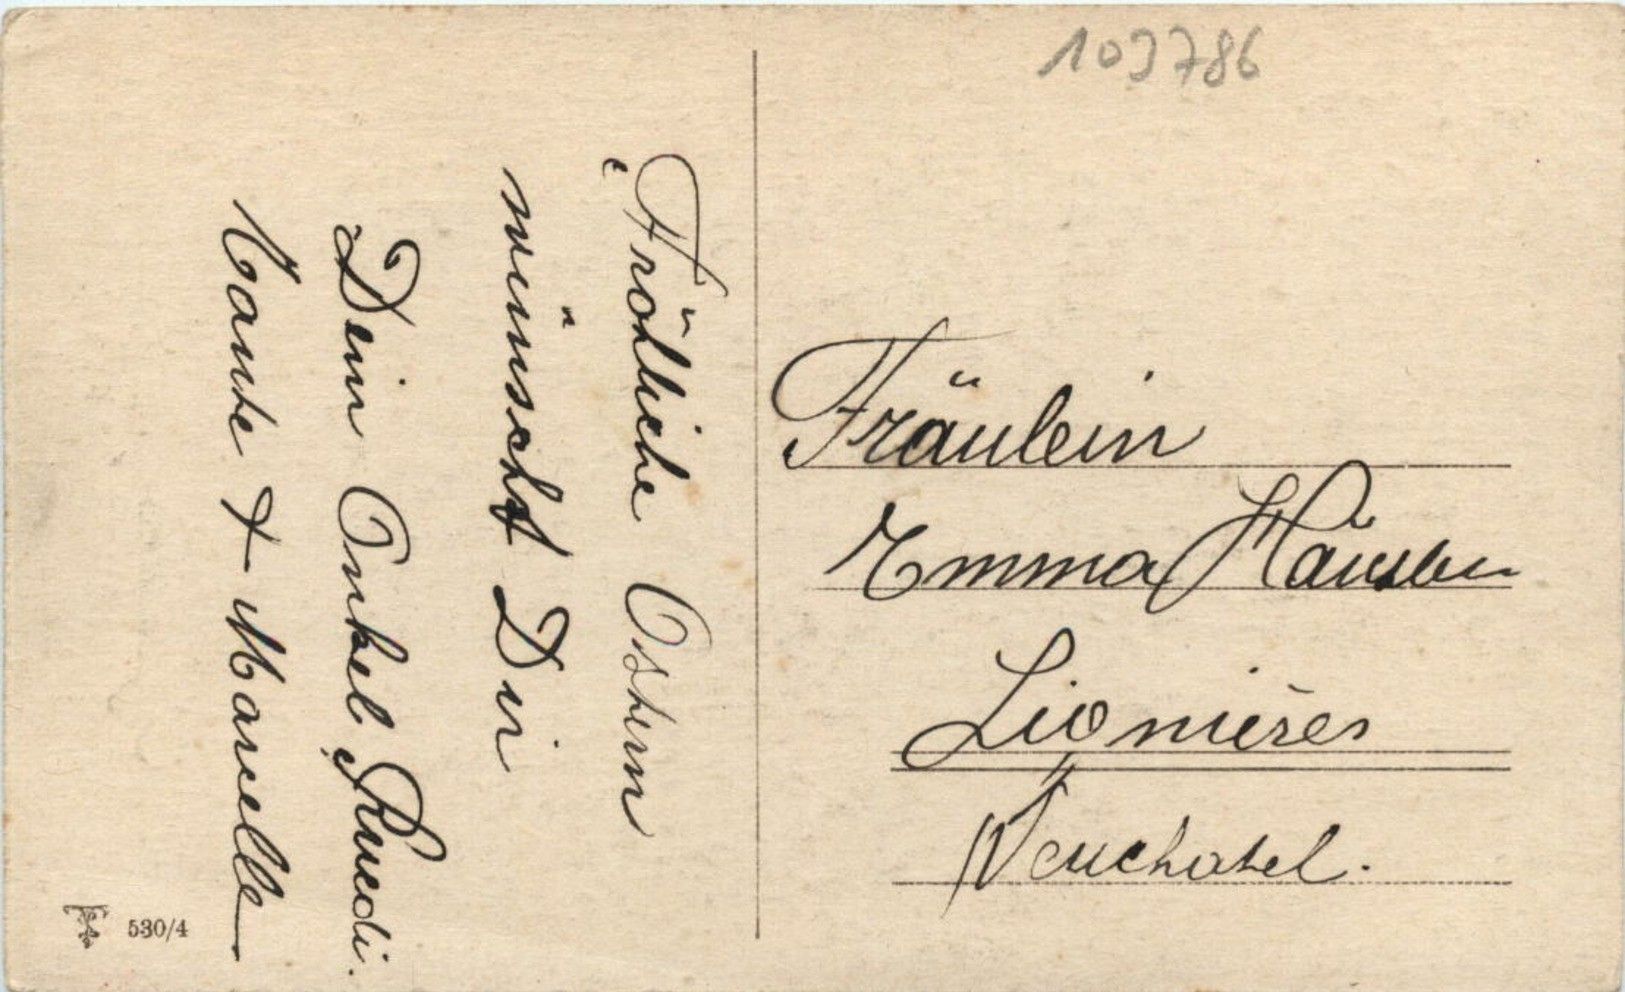 103786
Fröhliche Ostern
wünscht Dir
Dein Onkel Ruedi.
Tante & Marcelle
Fräulein
Emma
Lignières
Neuchatel.
530/4